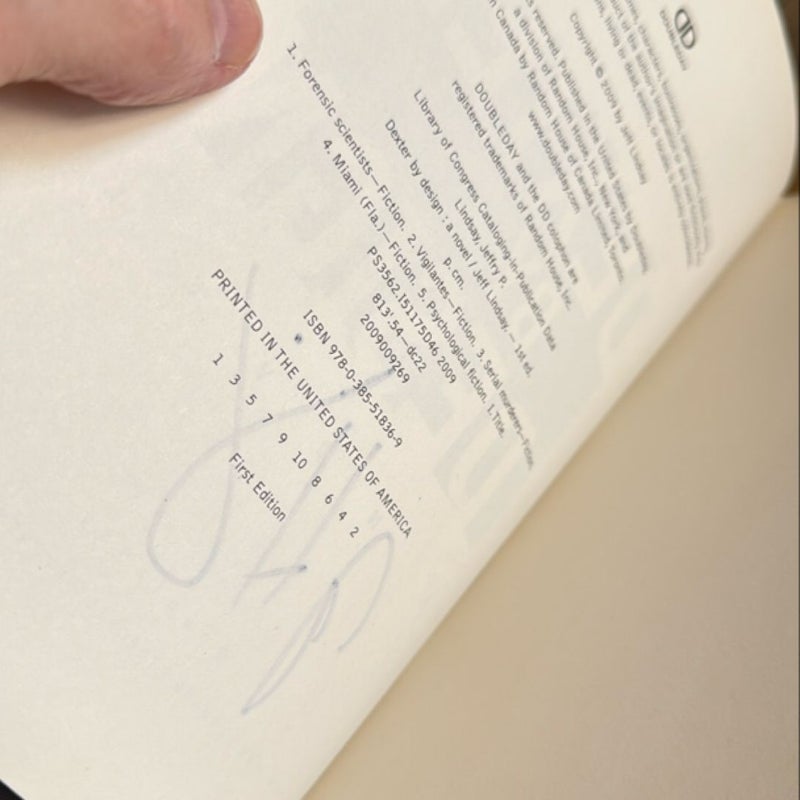 Copyright © 2009 by Jeff Lindsay
s reserved. Published in the United States by Doubleday,
a division of Random House, Inc., New York, and
n Canada by Random House of Canada Limited, Toronto.
www.doubleday.com
DOUBLEDAY and the DD colophon are
registered trademarks of Random House, Inc.
Library of Congress Cataloging-in-Publication Data
Lindsay, Jeffry P.
Dexter by design : a novel / Jeff Lindsay. — 1st ed.
p. cm.
1. Forensic scientists—Fiction. 2. Vigilantes—Fiction. 3. Serial murderers—Fiction.
4. Miami (Fla.)—Fiction. 5. Psychological fiction. I. Title.
PS3562.I51175D46 2009
813'.54—dc22
2009009269
ISBN 978-0-385-51836-9
PRINTED IN THE UNITED STATES OF AMERICA
1 3 5 7 9 10 8 6 4 2
First Edition